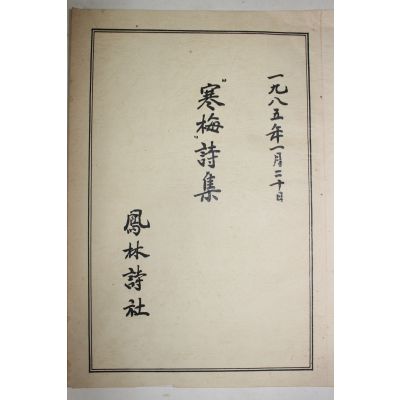 一九八五年一月二十日
"寒梅"詩集
鳳林詩社